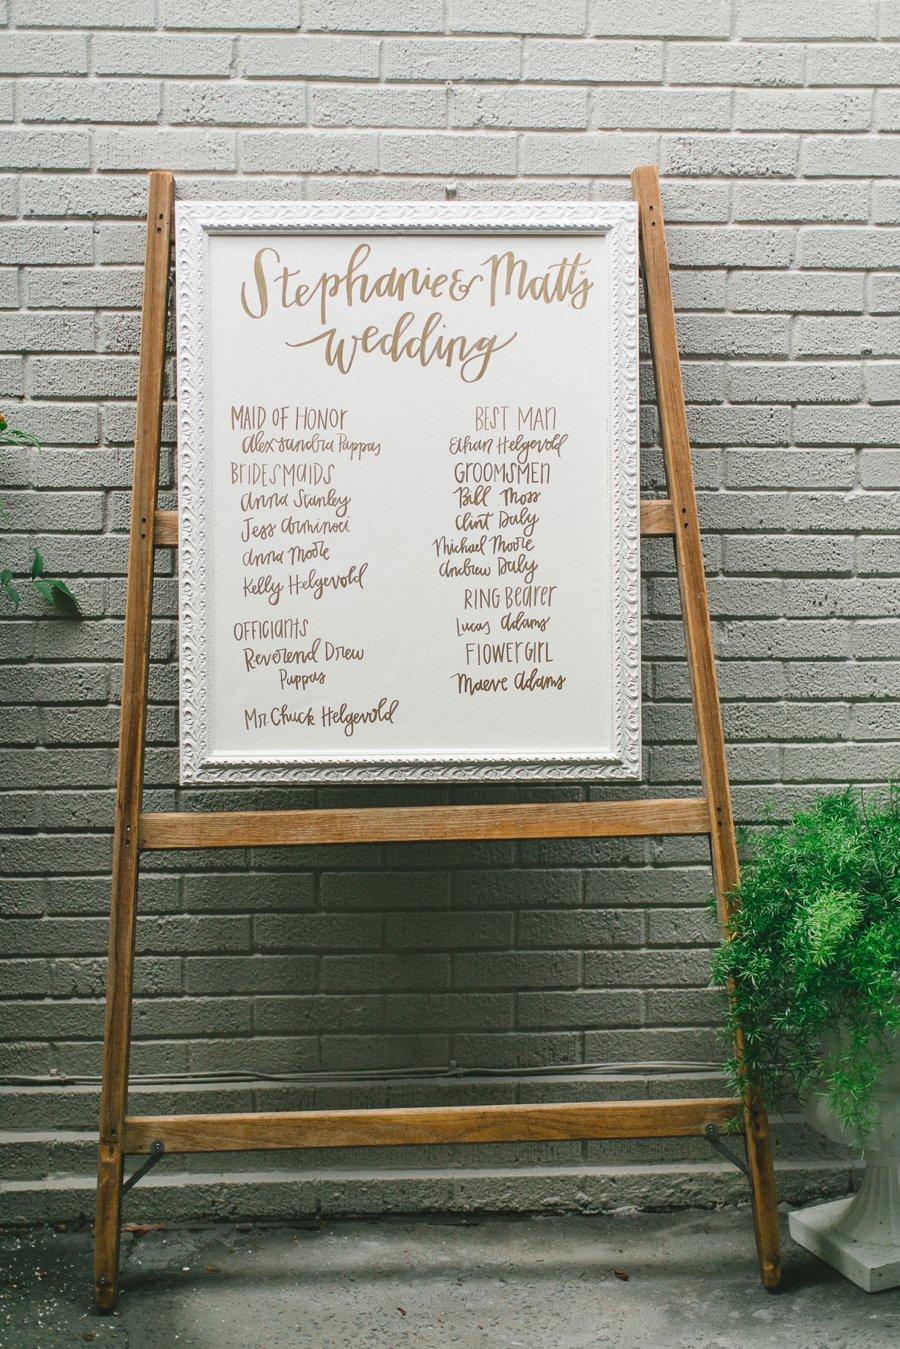 Stephanie & Matt's
wedding
MAID OF HONOR
Alexsandra Puppas
BRIDESMAIDS
Anna Stanley
Jess Aminoel
Anna Moore
Kelly Helgevold
OFFICIANTS
Reverend Drew
Puppas
Mr. Chuck Helgevold
BEST MAN
Ethan Helgevold
GROOMSMEN
Bill Moss
Clint Daly
Michael Moore
Andrew Daly
RING BEARER
Lucas Adams
FLOWERGIRL
Maeve Adams